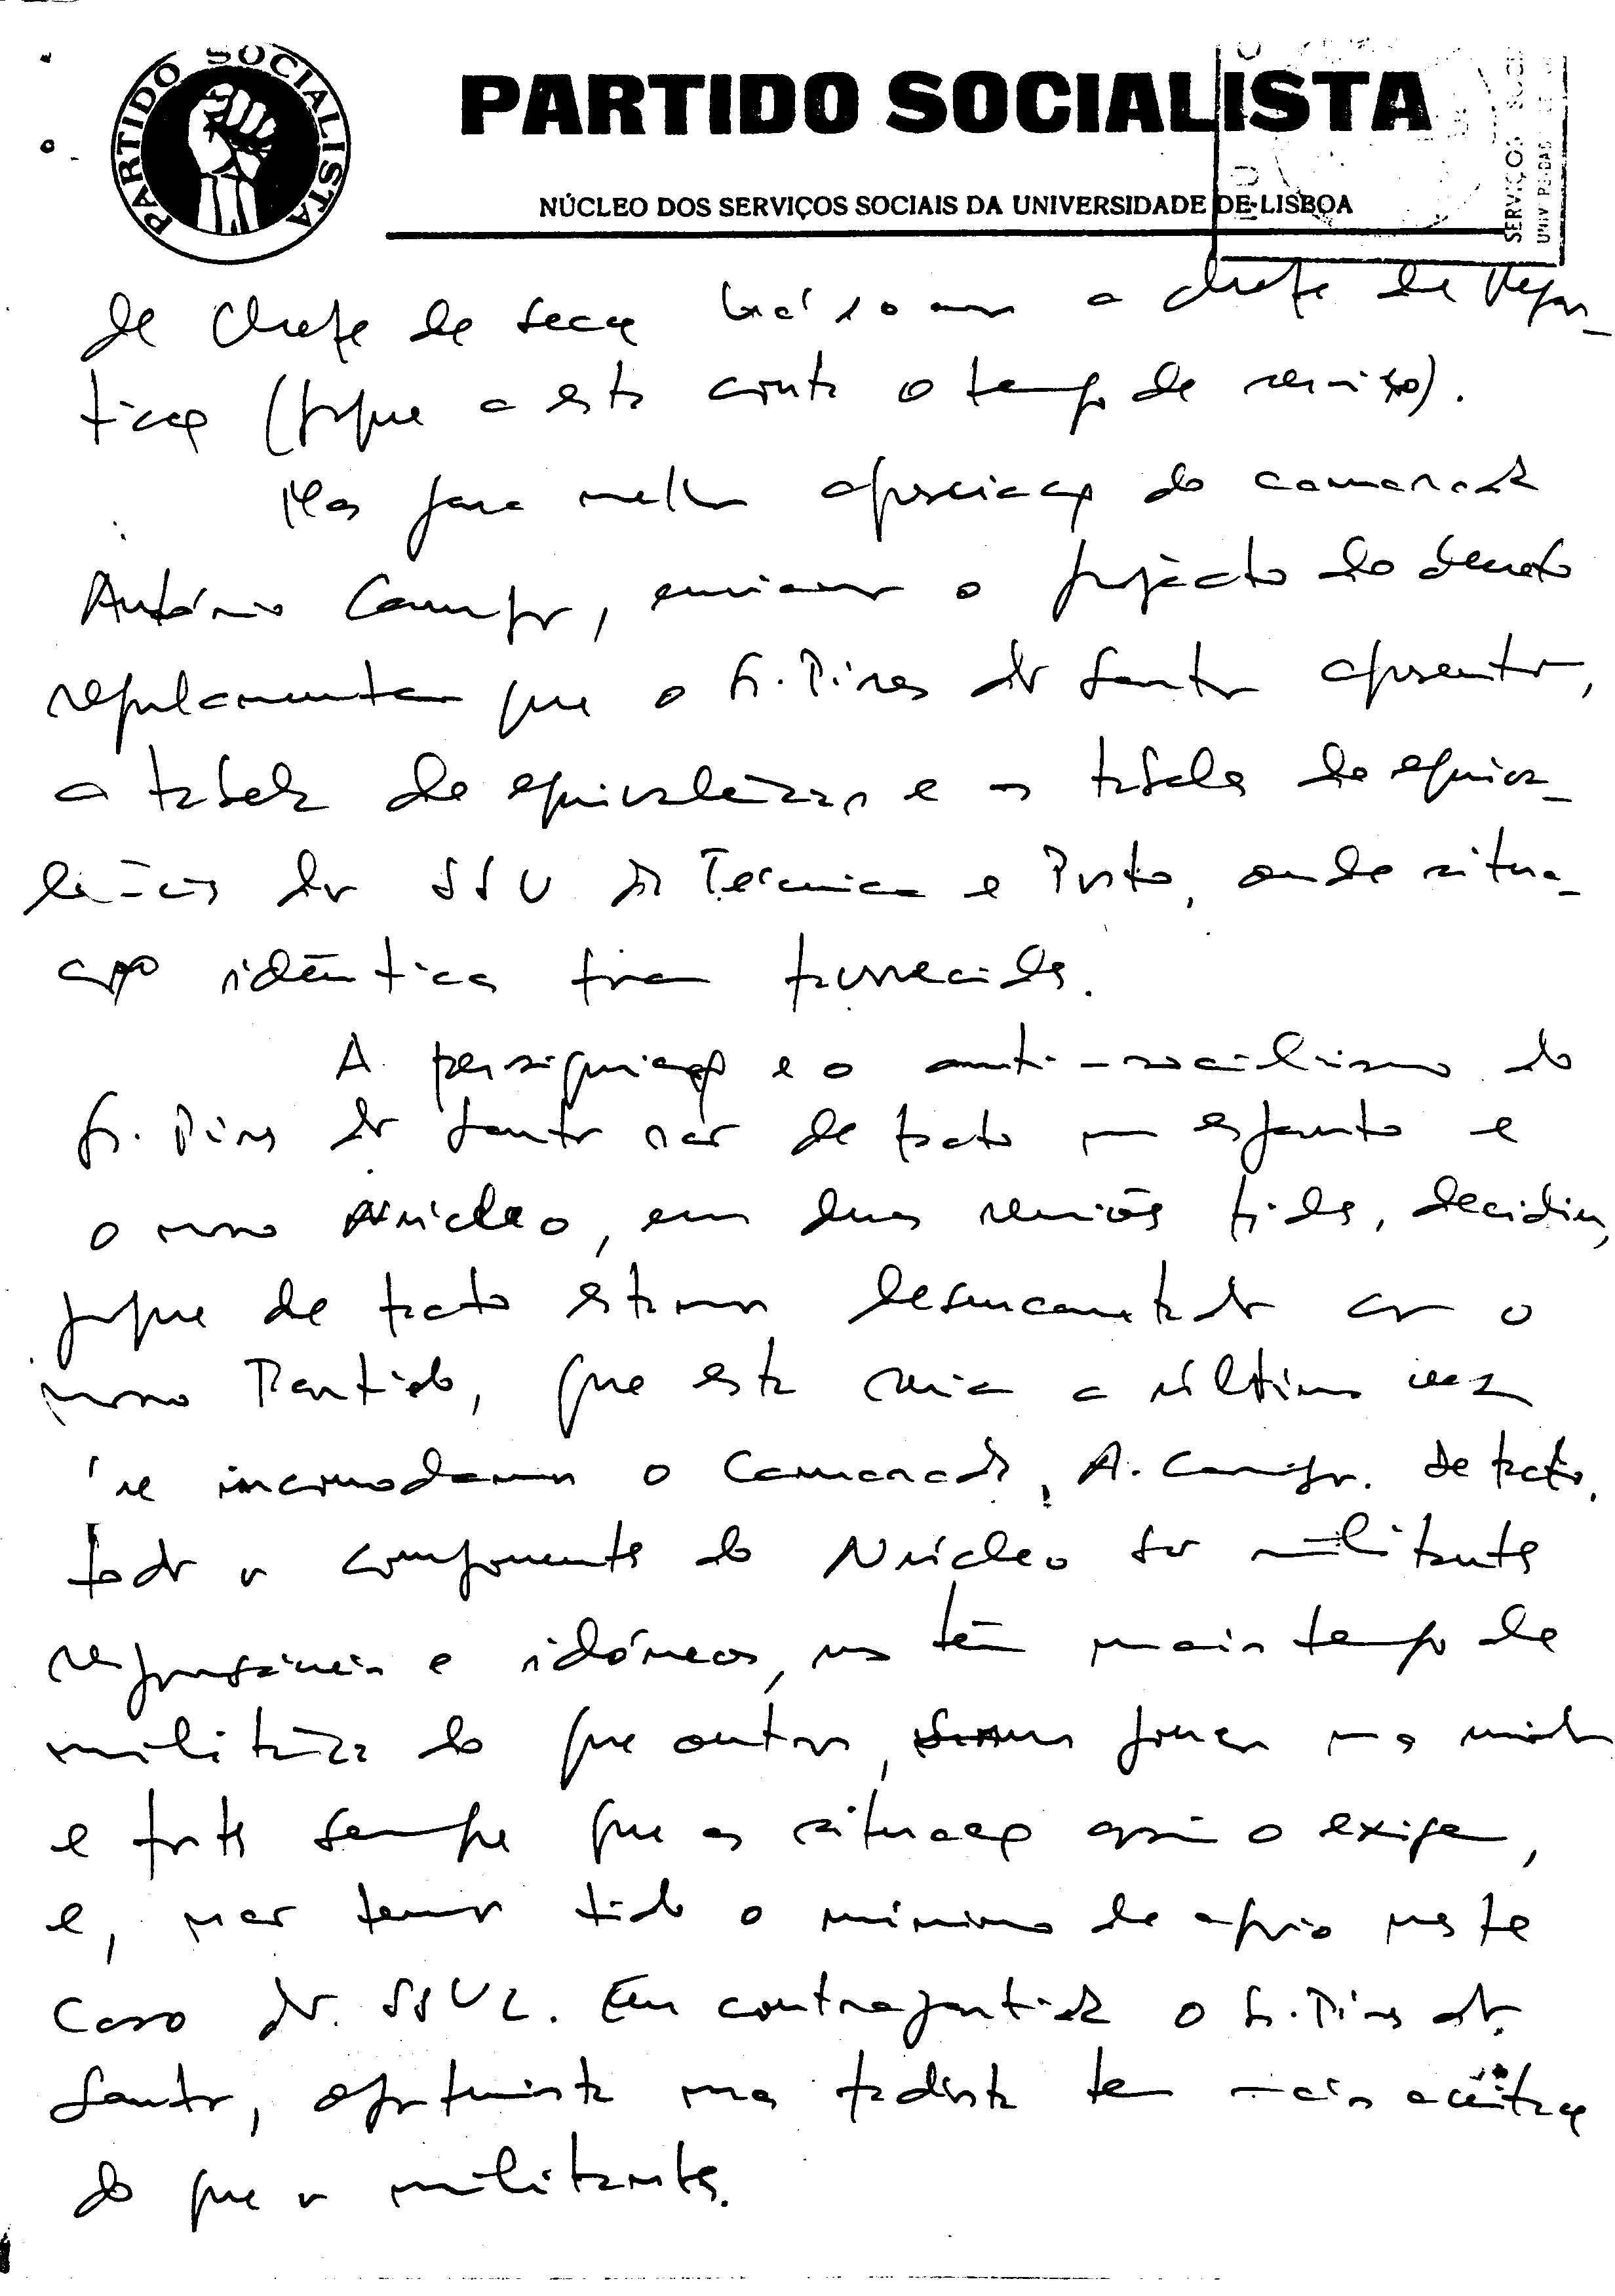 PARTIDO SOCIALISTA
PARTIDO SOCIALISTA
NÚCLEO DOS SERVIÇOS SOCIAIS DA UNIVERSIDADE DE LISBOA
SERVIÇOS SOCI
de Chefe de secç a chefe de Repar-
tição (porque a esta conta o tempo de serviço).
Mas para melhor apreciação do camarada
António Campos, enviamos o projecto do decreto
regulamentar que o Sr. Pires dos Santos apresentou,
a tabela de equivalências e as tabelas de equiva-
lências dos SSU da Técnica e Porto, onde situa-
ção idênticas foram
A perseguição e o anti-socialismo do
Sr. Pires dos Santos são de facto um espanto e
o nosso Núcleo, em duas reuniões tidas, decidiu,
porque de facto estamos desencantados com o
nosso Partido, que esta seria a última vez
se incomodavam o Camarada, A. Campos. De facto,
todos os componentes do Núcleo são militantes
responsáveis e idóneos, uns têm mais tempo de
militância do que outros, somos
e fortes sempre que as situação assim o exigem,
e, não temos tido o mínimo de apoio neste
caso dos SSUL. Em contrapartida o Sr. Pires dos
Santos, oportunista tem mais aceitação
do que os militantes.